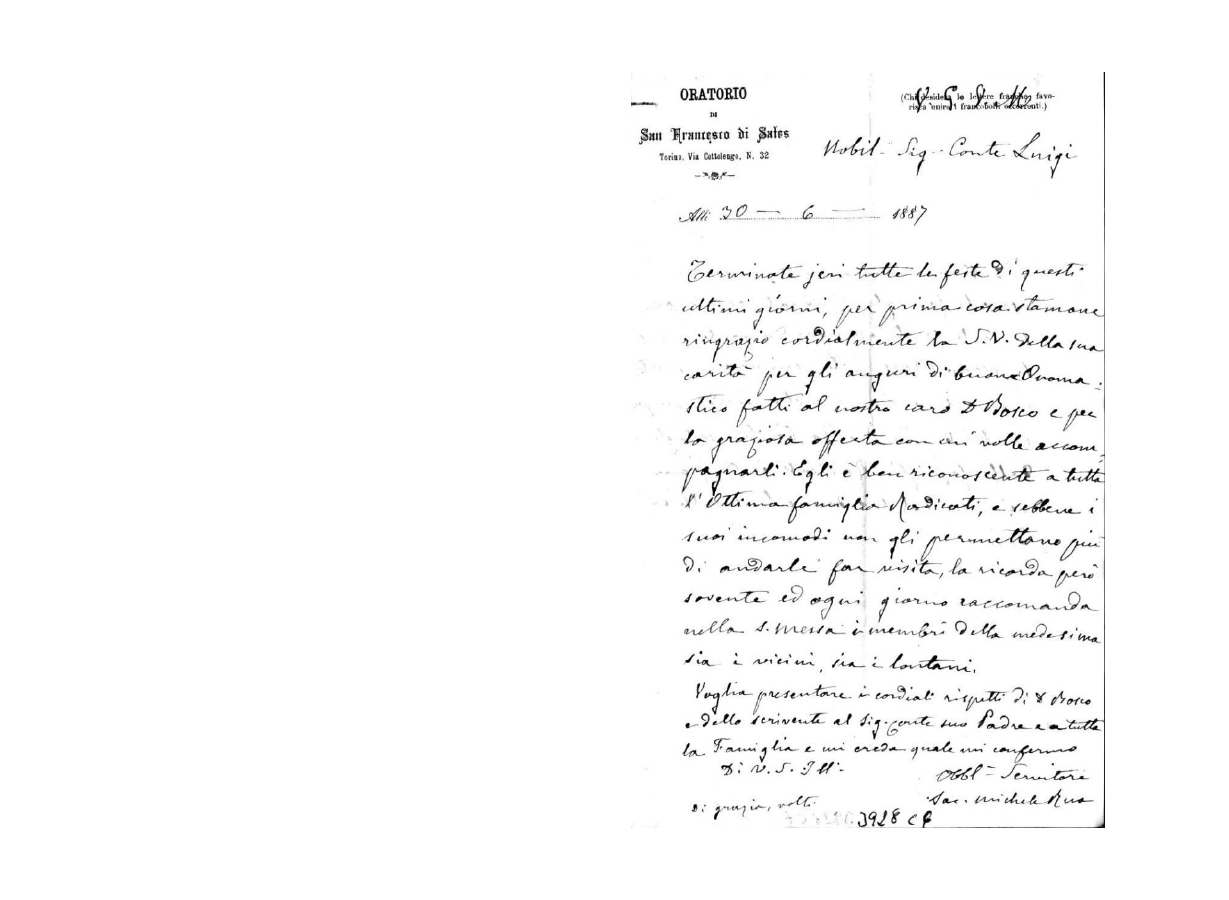 ORATORIO
DI
San Francesco di Sales
Torino, Via Cottolengo, N. 32
(Chi desidera le lettere franche, favo-
risca unire i francobolli occorrenti.)
V. G. G. M.
Nobil. Sig. Conte Luigi
Alli 30 — 6 — 1887
Terminate jeri tutte le feste di questi
ultimi giorni, per prima cosa stamane
ringrazio cordialmente la S.V. della sua
carità per gli auguri di buon Onoma-
stico fatti al nostro caro D Bosco e per
la graziosa offerta con cui volle accom-
pagnarli. Egli è ben riconoscente a tutta
l'Ottima famiglia Radicati, e sebbene i
suoi incomodi non gli permettano più
di andarle far visita, la ricorda però
sovente ed ogni giorno raccomanda
nella s. messa i membri della medesima
sia i vicini, sia i lontani.
Voglia presentare i cordiali rispetti di D Bosco
e dello scrivente al Sig. Conte suo Padre e a tutta
la Famiglia e mi creda quale mi confermo
Di V. S. Ill.
Obbl. Servitore
Sac. Michele Rua
Di grazia, volti
3928 C6